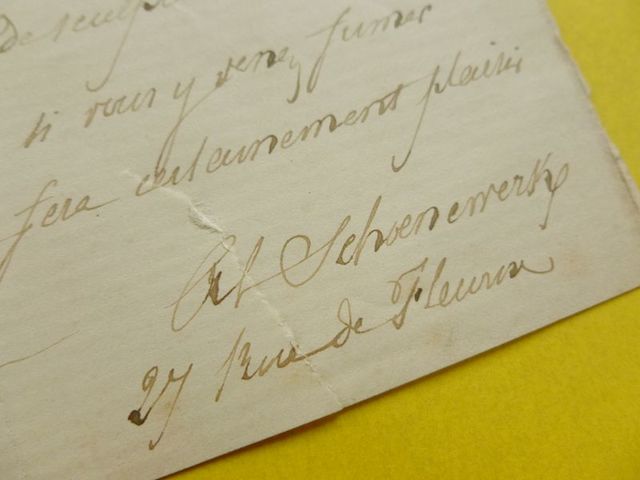 de sculp
si vous y venez fumer
fera certainement plaisir
Al Schoenewerk
27 Rue de Fleurus